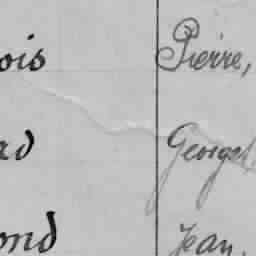 ois Pierre,
ad Georges
ond Jean.